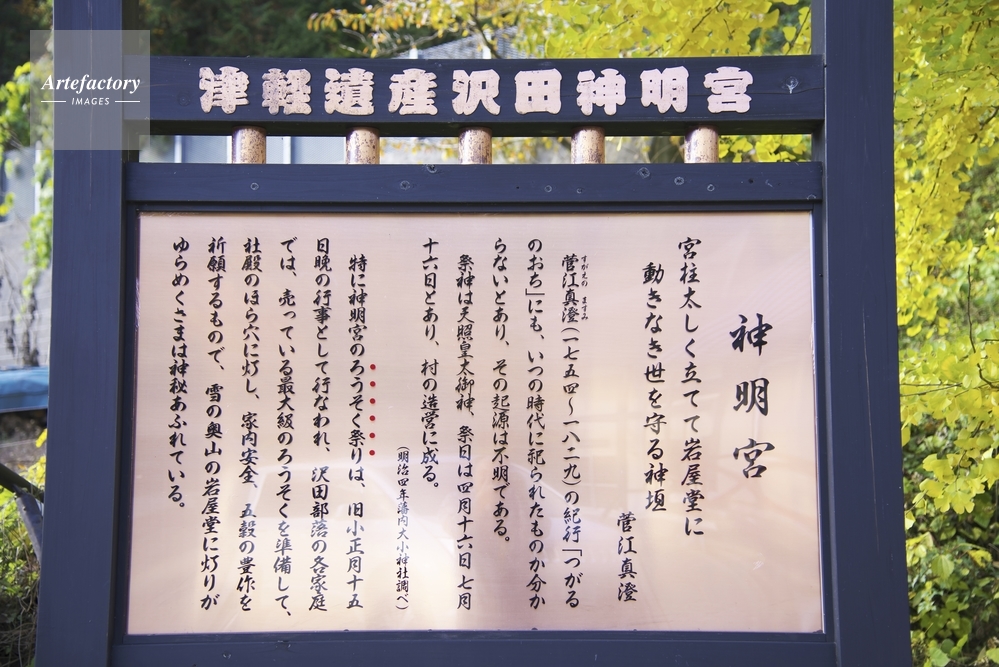 Artefactory
IMAGES
津軽遺産沢田神明宮
神明宮
宮柱太しく立てて岩屋堂に
動きなき世を守る神垣
菅江真澄
すがえの ますみ
菅江真澄(一七五四〜一八二九)の紀行「つがる
のおち」にも、いつの時代に祀られたものか分か
らないとあり、その起源は不明である。
祭神は天照皇太御神、祭日は四月十六日 七月
十六日とあり、村の造営に成る。
(明治四年藩内大小神社調べ)
特に神明宮のろうそく祭りは、旧小正月十五
日晩の行事として行なわれ、沢田部落の各家庭
では、売っている最大級のろうそくを準備して、
社殿のほら穴に灯し、家内安全、五穀の豊作を
祈願するもので、雪の奥山の岩屋堂に灯りが
ゆらめくさまは神秘あふれている。